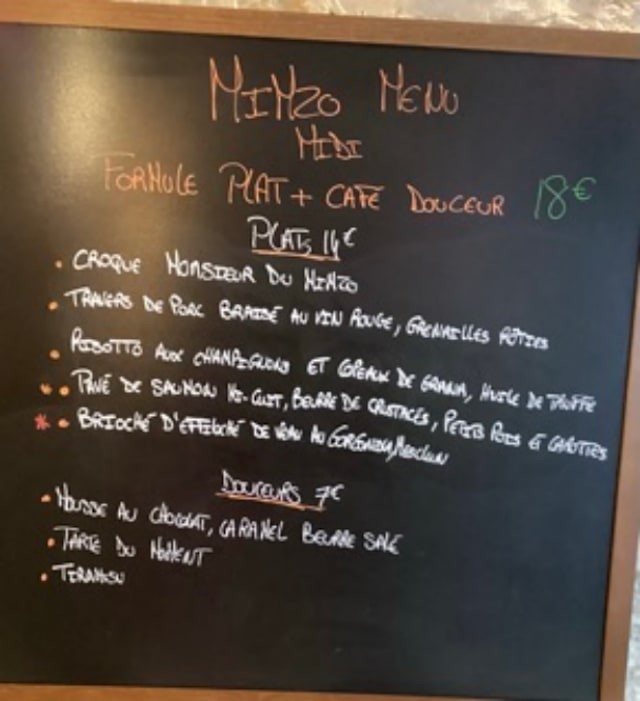 MIMZO MENU
MIDI
FORMULE PLAT + CAFÉ DOUCEUR 18€
PLATS 14€
• CROQUE MONSIEUR DU MIMZO
• TRAVERS DE PORC BRAISÉ AU VIN ROUGE, GRENAILLES RÔTIES
• RISOTTO AUX CHAMPIGNONS ET COPEAUX DE GRANA, HUILE DE TRUFFE
* • PAVÉ DE SAUMON MI-CUIT, BEURRE DE CRUSTACÉS, PETITS POIS ET CAROTTES
* • BRIOCHÉ D'EFFILOCHÉ DE VEAU AU GORGONZOLA, MESCLUN
DOUCEURS 7€
• MOUSSE AU CHOCOLAT, CARAMEL BEURRE SALÉ
• TARTE DU MOMENT
• TIRAMISU